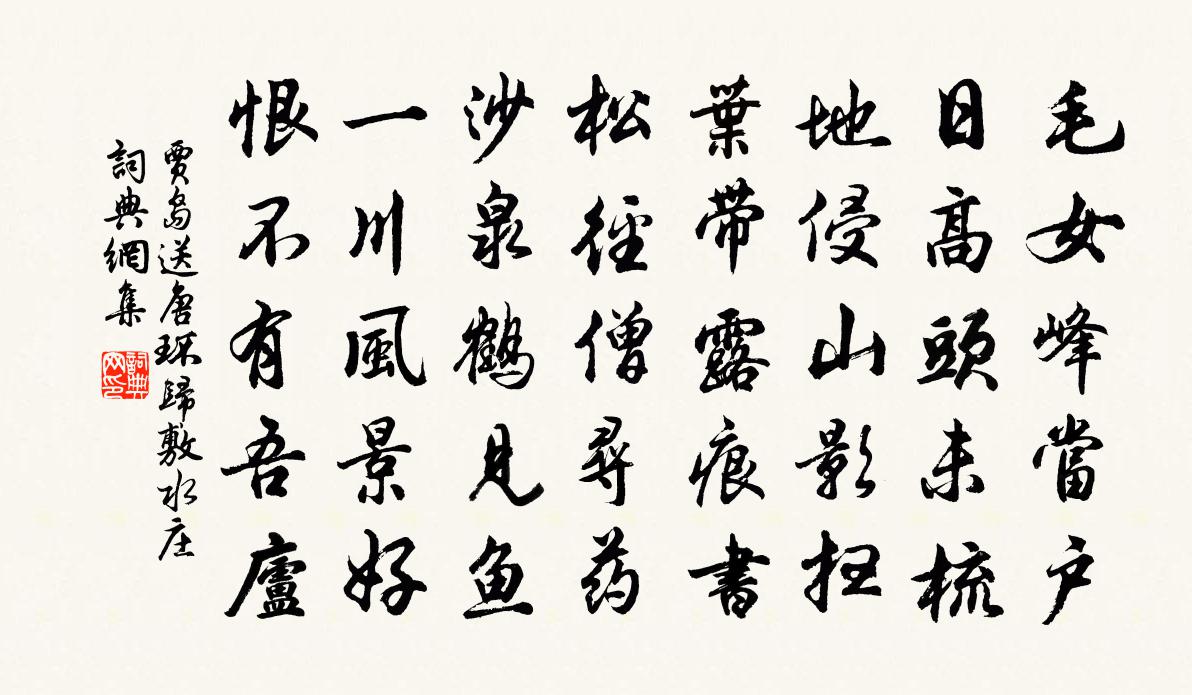 毛女峰當户
日高頭未梳
地侵山影扫
葉帶露痕書
松徑僧尋药
沙泉鶴見鱼
一川風景好
恨不有吾廬
賈岛送唐環歸敷水庄
詞典網集
詞典网印